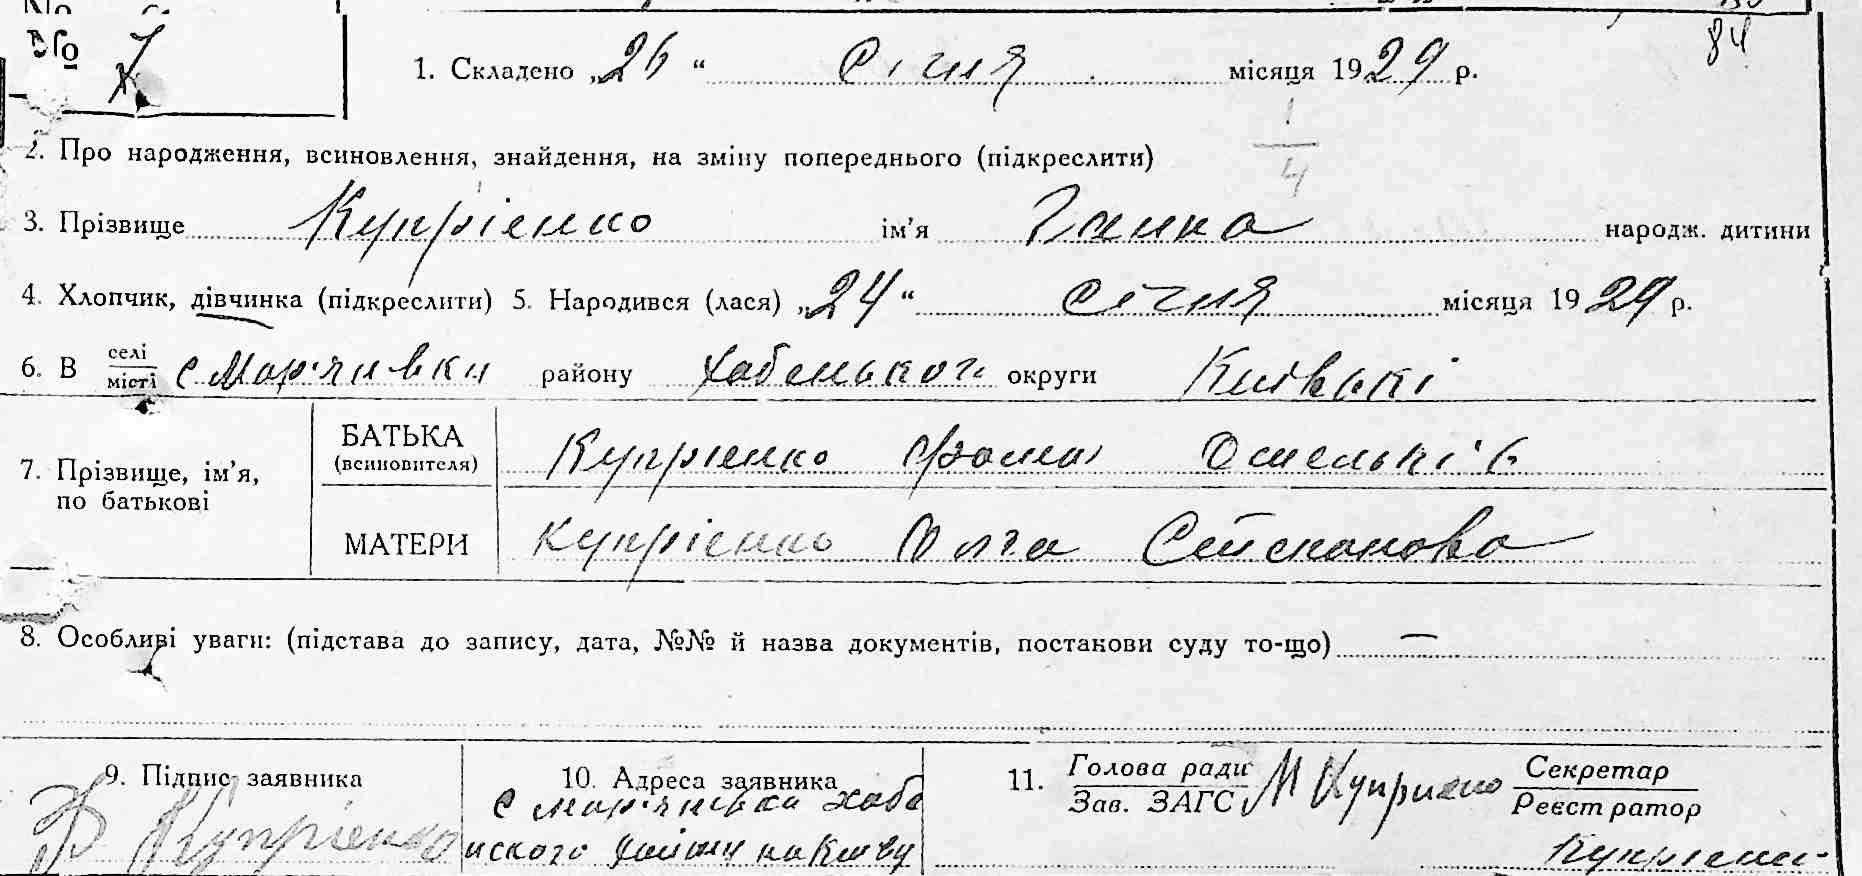 № 7
84
1. Складено „26“ Січня місяця 1929 р.
2. Про народження, всиновлення, знайдення, на зміну попереднього (підкреслити)
1/4
3. Прізвище Купрієнко ім’я Ганна народж. дитини
4. Хлопчик, дівчинка (підкреслити) 5. Народився (лася) „24“ Січня місяця 1929 р.
6. В селі/місті с Мар'янівки району Хабенького округи Київські
7. Прізвище, ім’я, по батькові
БАТЬКА (всиновителя) Купрієнко Фома Омелькі'в
МАТЕРИ Купрієнко Ольга Степанова
8. Особливі уваги: (підстава до запису, дата, №№ й назва документів, постанови суду то-що) —
9. Підпис заявника
Ф Купрієнко
10. Адреса заявника
с Мар'янівка Хабе
нского району на Київу
11. Голова ради/Зав. ЗАГС М Куприено Секретар/Реєстратор